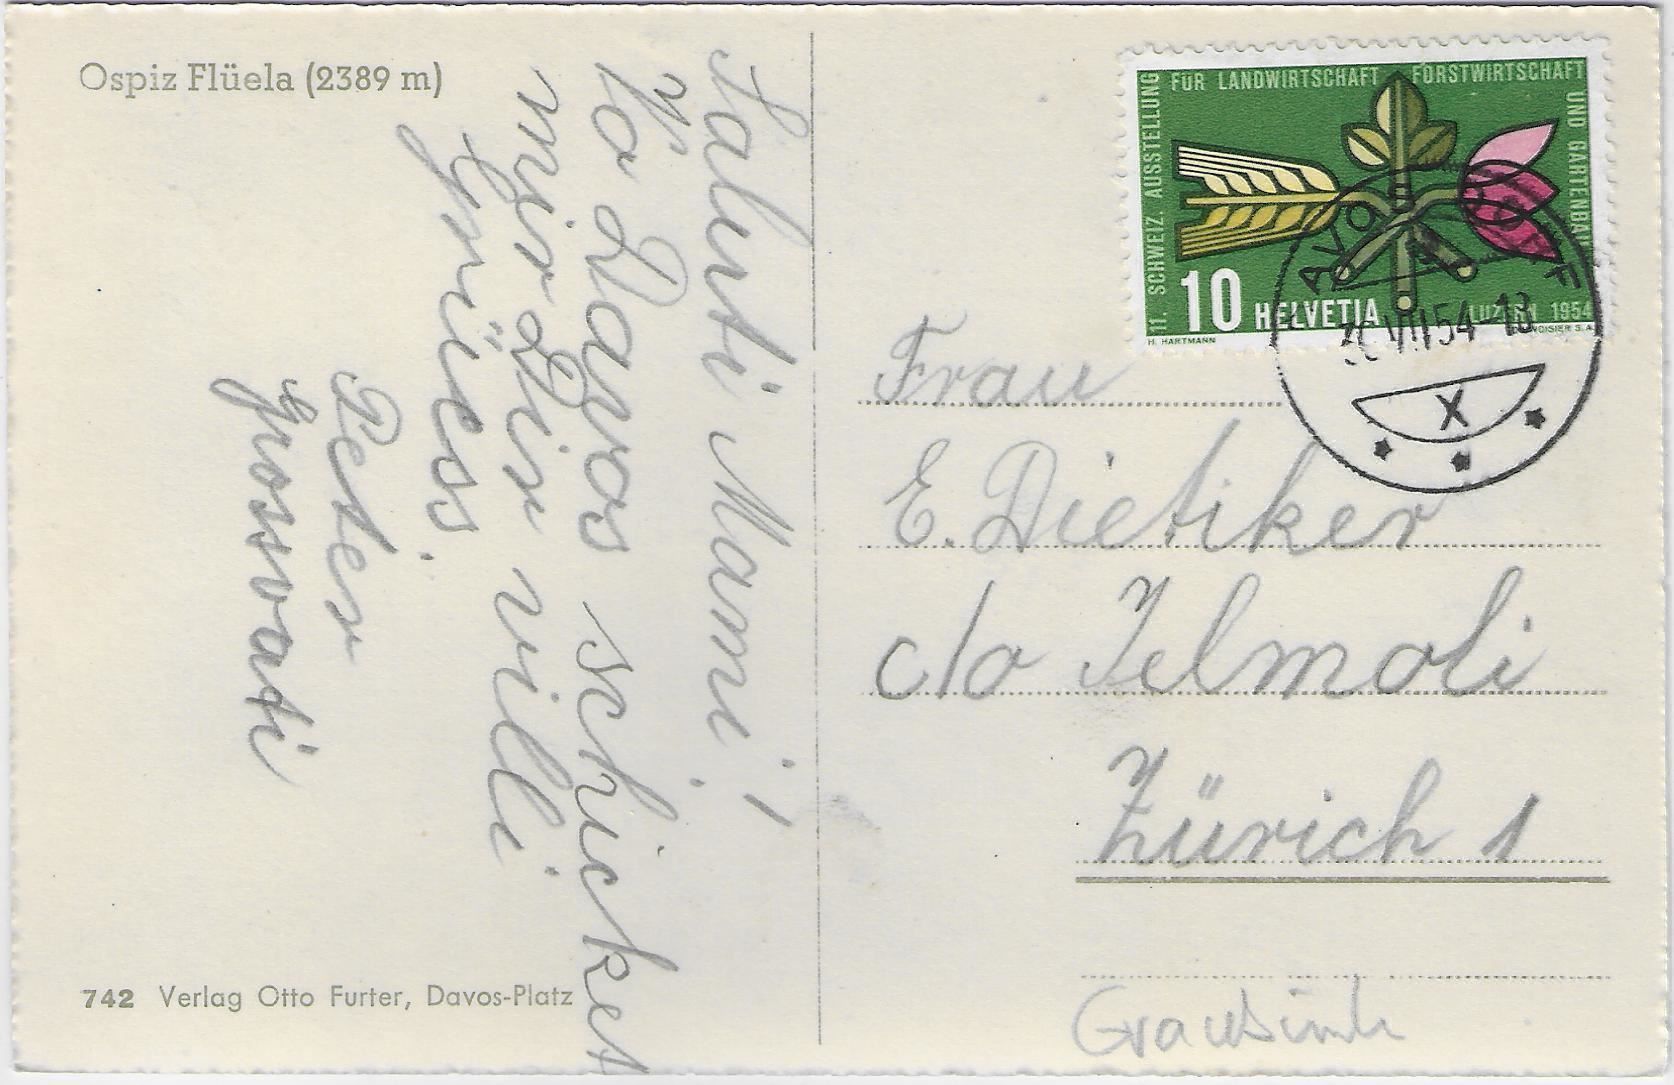 Ospiz Flüela (2389 m)
Saluti Mami!
Vo Davos schicket
mir Dir villi
grüess.
Peter
Grossvati
742 Verlag Otto Furter, Davos-Platz
11. SCHWEIZ. AUSSTELLUNG FÜR LANDWIRTSCHAFT FORSTWIRTSCHAFT UND GARTENBAU
LUZERN 1954
10 HELVETIA
H. HARTMANN
COURVOISIER S.A.
DAVOS DORF
30.VIII.54-18
X
Frau
E. Dietiker
c/o Jelmoli
Zürich 1